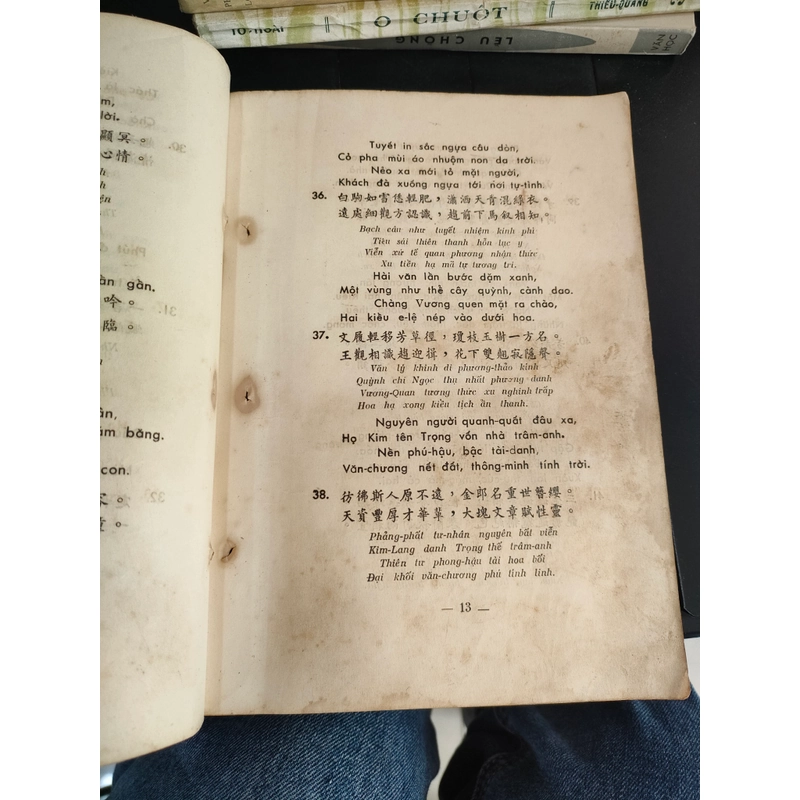 TÔ-HOÀI
O CHUỘT
THIẾU-QUANG
LỀU CHÕNG
VĂN HỌC
lời.
顯冥。
心情。
àn gần.
吟。
臨。
ân,
ăm băng.
con.
Tuyết in sắc ngựa câu dòn,
Cỏ pha mùi áo nhuộm non da trời.
Nẻo xa mới tỏ mặt người,
Khách đà xuống ngựa tới nơi tự-tình.
36. 白駒如雪恁輕肥，瀟洒天青混綠衣。
遠處細觀方認識，趨前下馬叙相知。
Bạch câu như tuyết nhiệm kinh phì
Tiêu sái thiên thanh hỗn lục y
Viễn xứ tế quan phương nhận thức
Xu tiền hạ mã tự tương tri.
Hài văn lần bước dặm xanh,
Một vùng như thể cây quỳnh, cành dao.
Chàng Vương quen mặt ra chào,
Hai kiều e-lệ nép vào dưới hoa.
37. 文履輕移芳草徑，瓊枝玉樹一方名。
王觀相識趨迎揖，花下雙翹寂隱聲。
Văn lý khinh di phương-thảo kính
Quỳnh chi Ngọc thụ nhất phương danh
Vương-Quan tương thức xu nghinh trấp
Hoa hạ xong kiều tịch ẩn thanh.
Nguyên người quanh-quất đâu xa,
Họ Kim tên Trọng vốn nhà trâm-anh.
Nền phú-hậu, bậc tài-danh,
Văn-chương nết đất, thông-minh tính trời.
38. 彷彿斯人原不遠，金郎名重世簪纓。
天資豐厚才華萆，大塊文章賦性靈。
Phảng-phất tư-nhân nguyên bất viễn
Kim-Lang danh Trọng thế trâm-anh
Thiên tư phong-hậu tài hoa bối
Đại khối văn-chương phú tính linh.
— 13 —